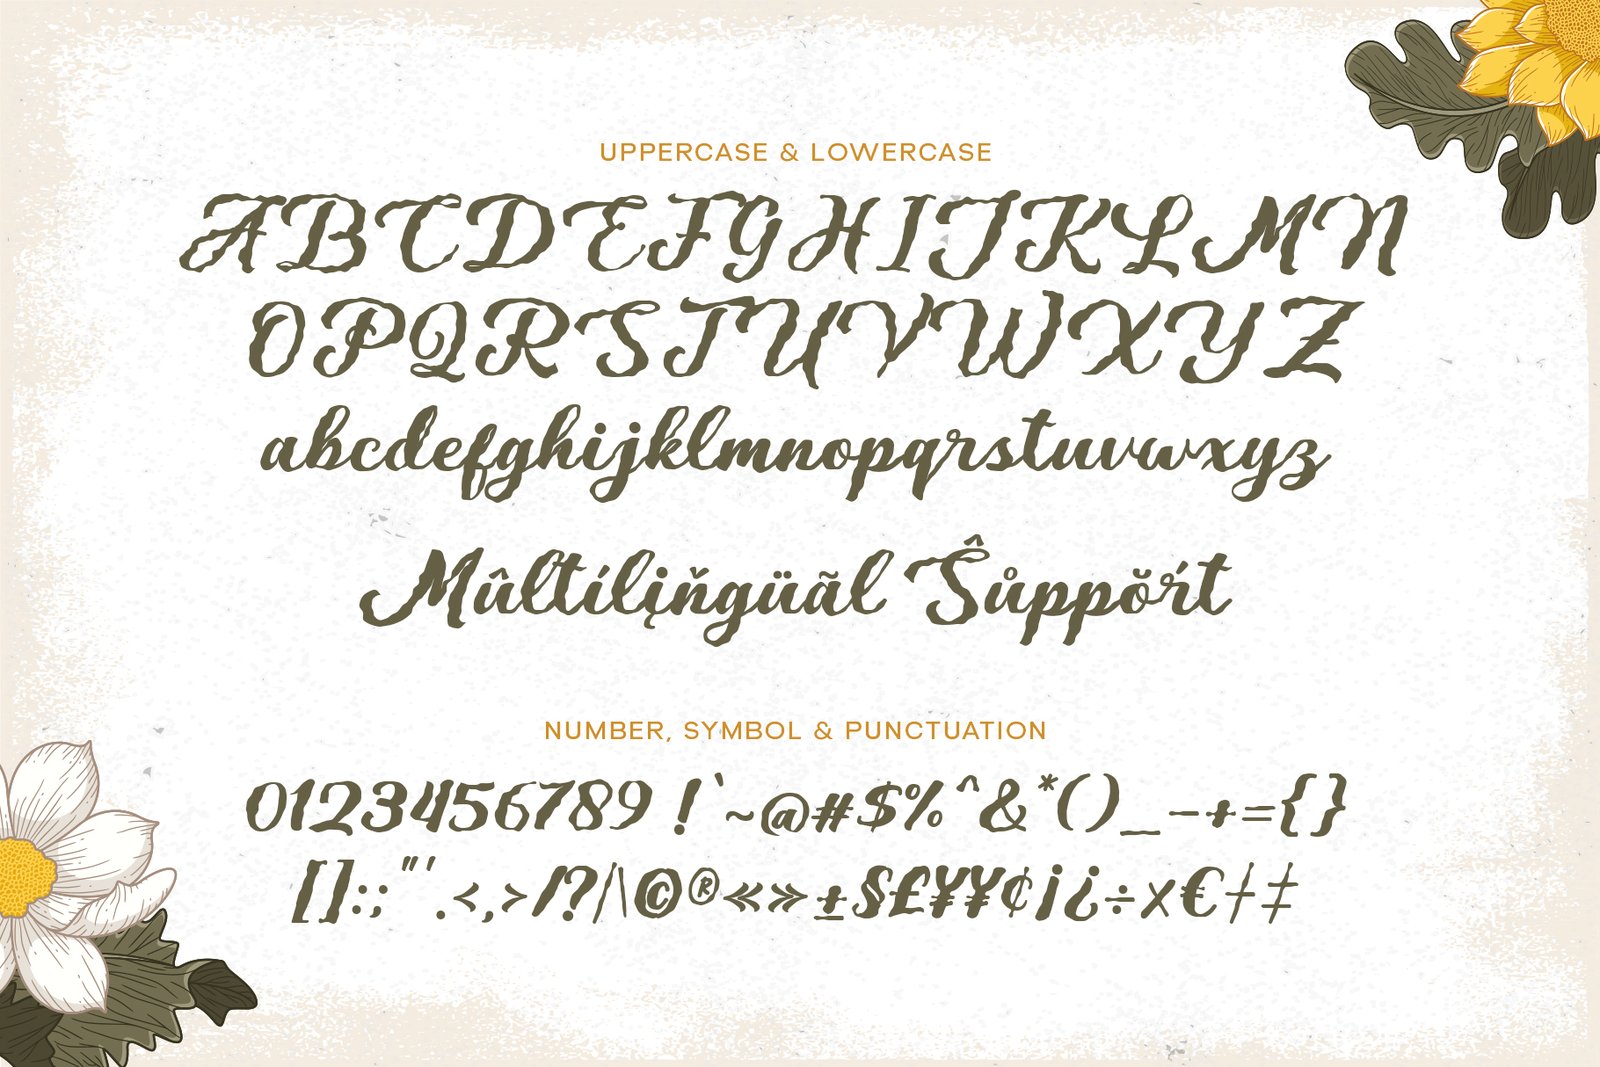 UPPERCASE & LOWERCASE
ABCDEFGHIJKLMN
OPQRSTUVWXYZ
abcdefghijklmnopqrstuvwxyz
Mûltílįňgüãl Ŝůppŏŕt
NUMBER, SYMBOL & PUNCTUATION
0123456789 !`~@#$%^&*()_-+={}
[]:;"'.<,>/?/|\©®«»±§£¥¥¢¡¿÷×€†‡